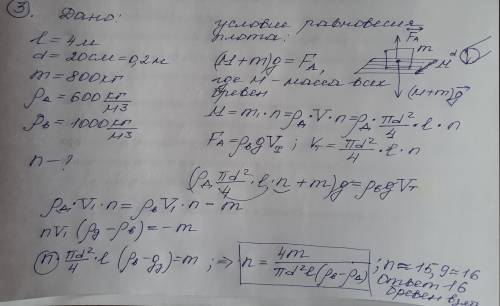 ③ Дано:
l = 4м
d = 20см = 0,2м
m = 800кг
ρд = 600 кг/м3
ρв = 1000 кг/м3
n - ?
условие равновесия
плота:
(M+m)g = FA,
где M - масса всех
бревен
M = m₁·n = ρд·V·n = ρд·πd²/4·l·n
FA = ρв g Vт ; Vт = πd²/4·l·n
FA
m
d
M
(M+m)g
(ρд πd²/4·l·n + m)g = ρв g Vт
ρд·V₁·n = ρв V₁·n - m
nV₁(ρд - ρв) = -m
n·πd²/4·l(ρв - ρд) = m ; ⇒ n = 4m/πd²l(ρв - ρд) ; n ≈ 15,9 ≈ 16
Ответ 16
бревен